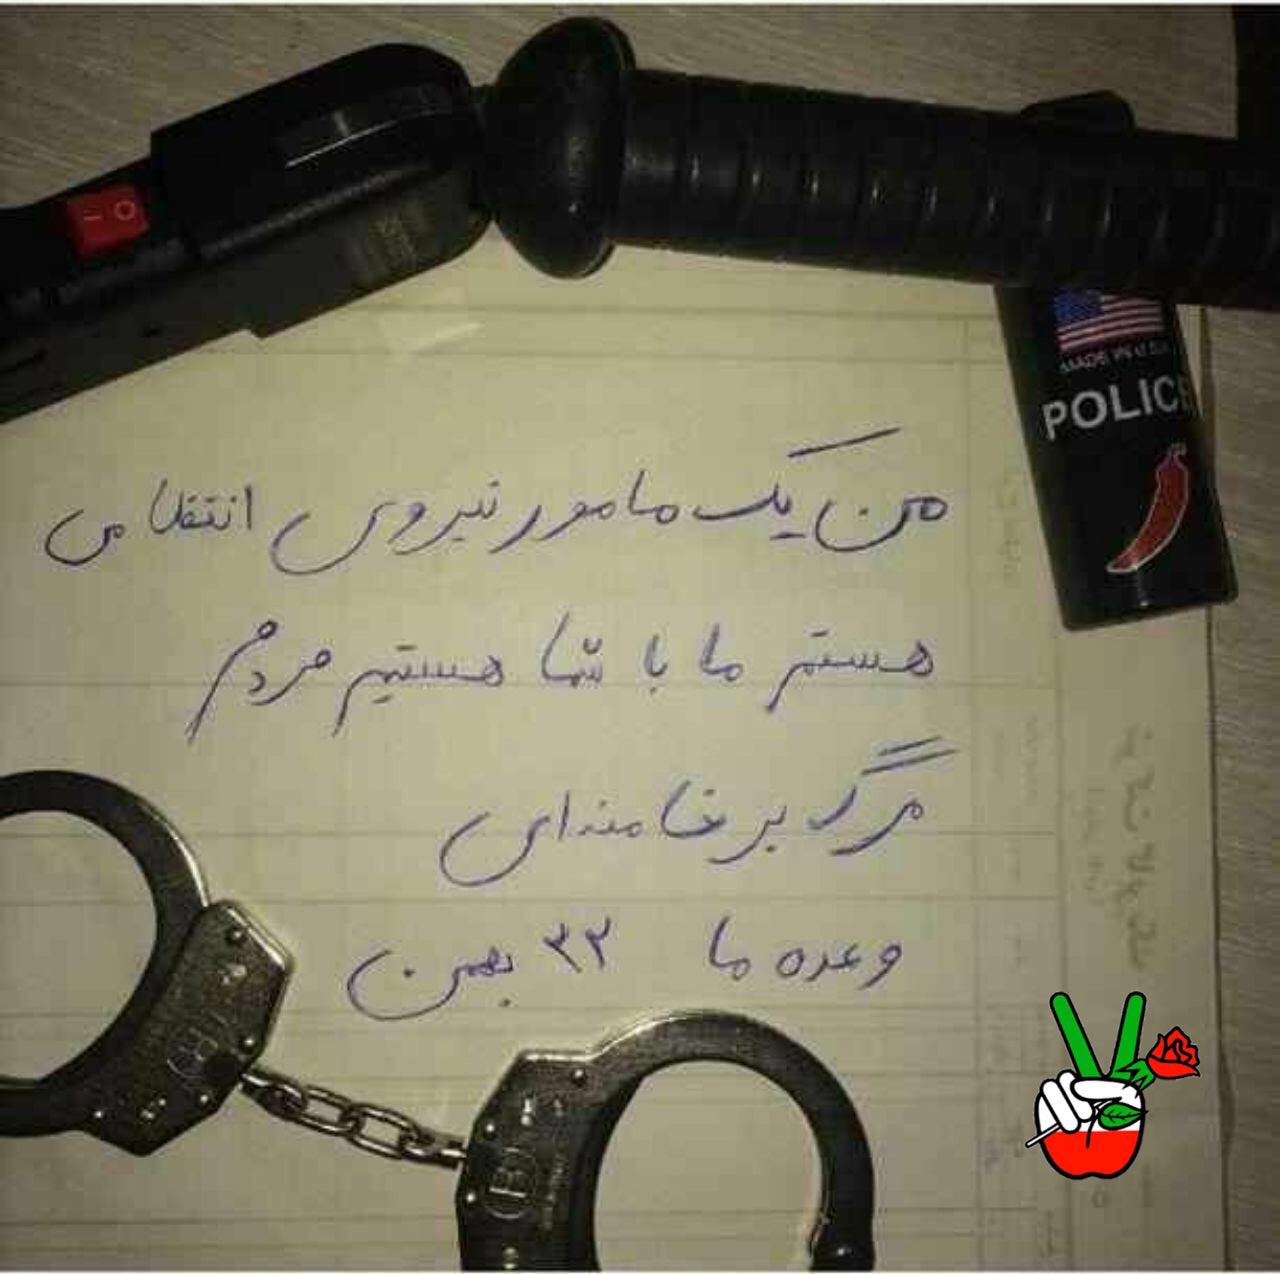 MADE IN U.S.A
POLICE
من یک مامور نیروی انتظامی
هستم ما با شما هستیم مردم
مرگ بر خامنه ای
وعده ما ۲۲ بهمن